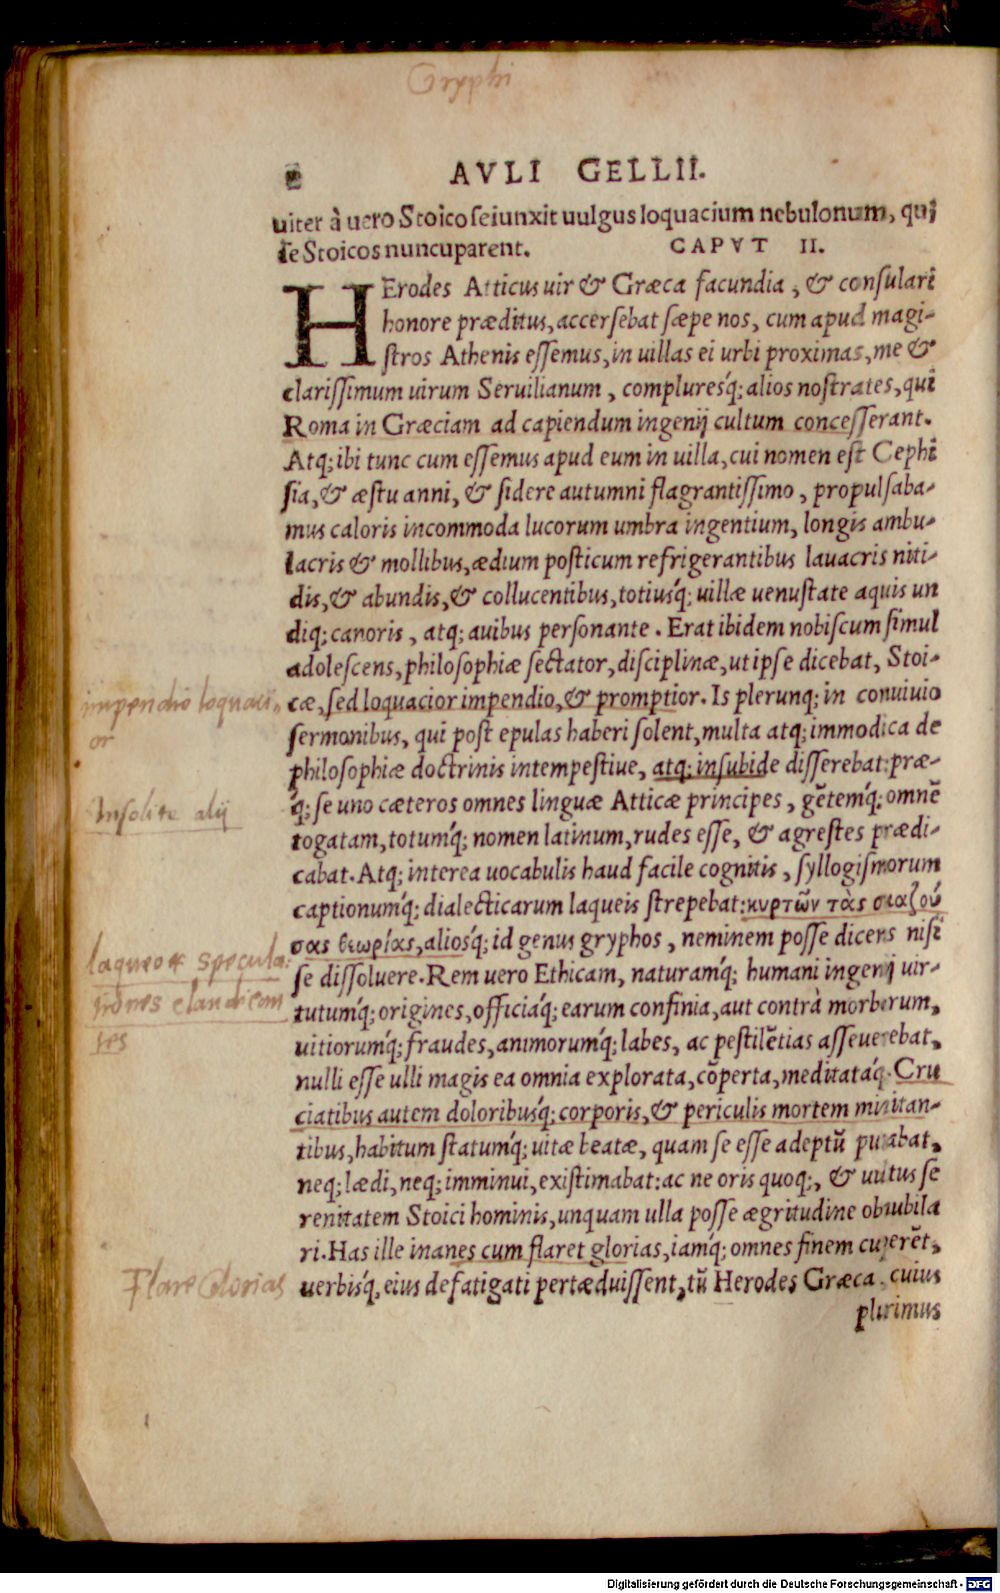 Gryphi
AVLI GELLII.
uiter à uero Stoico seiunxit uulgus loquacium nebulonum, qui
se Stoicos nuncuparent. CAPVT II.
HErodes Atticus uir & Græca facundia, & consulari
honore præditus, accersebat sæpe nos, cum apud magi-
stros Athenis essemus, in uillas ei urbi proximas, me &
clarissimum uirum Seruilianum, complures´q; alios nostrates, qui
Roma in Græciam ad capiendum ingenij cultum concesserant.
Atq; ibi tunc cum essemus apud eum in uilla, cui nomen est Cephi
sia, & æstu anni, & sidere autumni flagrantissimo, propulsaba-
mus caloris incommoda lucorum umbra ingentium, longis ambu-
lacris & mollibus, ædium posticum refrigerantibus lauacris niti-
dis, & abundis, & collucentibus, totius´q; uillæ uenustate aquis un
diq; canoris, atq; auibus personante. Erat ibidem nobiscum simul
adolescens, philosophiæ sectator, disciplinæ, ut ipse dicebat, Stoi-
impendio loquaci,
or
cæ, sed loquacior impendio, & promptior. Is plerunq; in conuiuio
sermonibus, qui post epulas haberi solent, multa atq; immodica de
philosophiæ doctrinis intempestiue, atq; insubide disserebat: præ-
Insolite alij
´q; se uno cæteros omnes linguæ Atticæ principes, gẽtem´q; omnẽ
togatam, totum´q; nomen latinum, rudes esse, & agrestes prædi-
cabat. Atq; interea uocabulis haud facile cognitis, syllogismorum
captionum´q; dialecticarum laqueis strepebat: κυρτῶν τὰς σιαζού
laqueos specula:
σας θεωρίας, alios´q; id genus gryphos, neminem posse dicens nisi
se dissoluere. Rem uero Ethicam, naturam´q; humani ingenij uir-
tutum´q; origines, officia´q; earum confinia, aut contrà morborum,
uitiorum´q; fraudes, animorum´q; labes, ac pestilẽtias asseuerebat,
nulli esse ulli magis ea omnia explorata, cõperta, meditata´q. Cru
ciatibus autem doloribus´q; corporis, & periculis mortem minitan-
tibus, habitum statum´q; uitæ beatæ, quam se esse adeptũ putabat,
neq; lædi, neq; imminui, existimabat: ac ne oris quoq;, & uultus se
renitatem Stoici hominis, unquam ulla posse ægritudine obnubila
ri. Has ille inanes cum flaret glorias, iam´q; omnes finem cuperẽt,
Flare Glorias
uerbis´q, eius defatigati pertæduissent, tũ Herodes Græca, cuius
plurimus
Digitalisierung gefördert durch die Deutsche Forschungsgemeinschaft - DFG